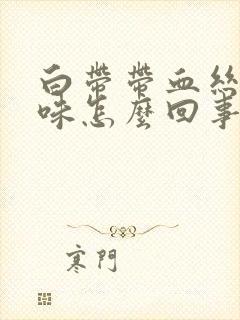 白帶帶血絲
味怎麼回事
寒門